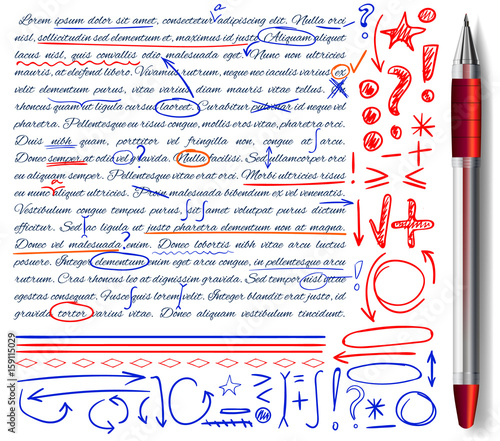 Lorem ipsum dolor sit amet, consectetur adipiscing elit. Nulla orci
nisl, sollicitudin sed elementum et, maximus id justo. Aliquam aliquet
lacus nisl, quis convallis odio malesuada eget. Nunc non ultricies
mauris, at eleifend libero. Vivamus rutrum, neque nec iaculis varius, ex
velit elementum purus, vitae varius diam vitae tellus.
rhoncus quam ut ligula cursus laoreet. Curabitur pulvinar id neque vel
pharetra. Pellentesque eu risus congue, mollis eros vitae, pharetra orci.
Duis nibh quam, porttitor vel fringilla non, congue at arcu.
Donec semper at odio vel gravida. Nulla facilisi. Sed ullamcorper orci
et aliquam semper. Pellentesque vitae erat orci. Morbi ultricies risus
eu nunc aliquet ultricies. Proin malesuada bibendum ex vel venenatis.
Vestibulum congue tempus purus, sit amet volutpat purus dictum
efficitur. Sed ac ligula ut justo pharetra elementum non at magna.
Donec vel malesuada enim. Donec lobortis nibh vitae arcu luctus
posuere. Integer elementum enim eget arcu congue, in pellentesque arcu
rutrum. Cras rhoncus leo at dignissim gravida. Sed tempor nisl vitae
egestas consequat. Fusce quis lorem velit. Integer blandit erat justo, id
gravida tortor varius vitae. Donec aliquam vestibulum tincidunt.
159115029
Adobe Stock